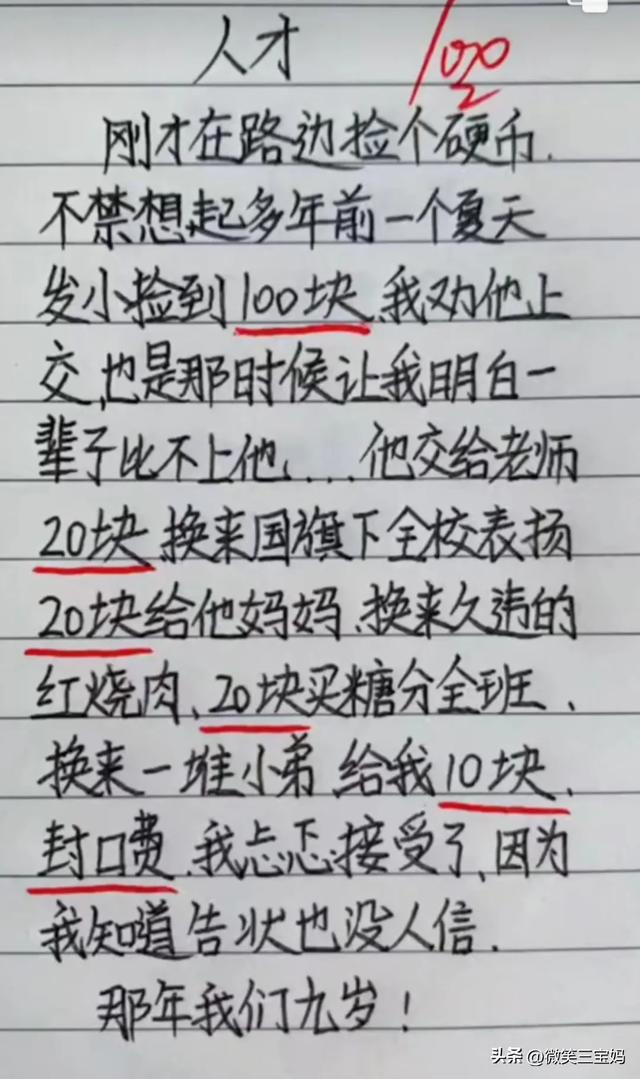 人才 100
刚才在路边捡个硬币.
不禁想起多年前一个夏天
发小捡到100块.我劝他上
交,也是那时候让我明白一
辈子比不上他....他交给老师
20块换来国旗下全校表扬
20块给他妈妈.换来久违的
红烧肉、20块买糖分全班、
换来一堆小弟给我10块.
封口费.我忐忑接受了、因为
我知道告状也没人信.
那年我们九岁!
头条 @微笑三宝妈